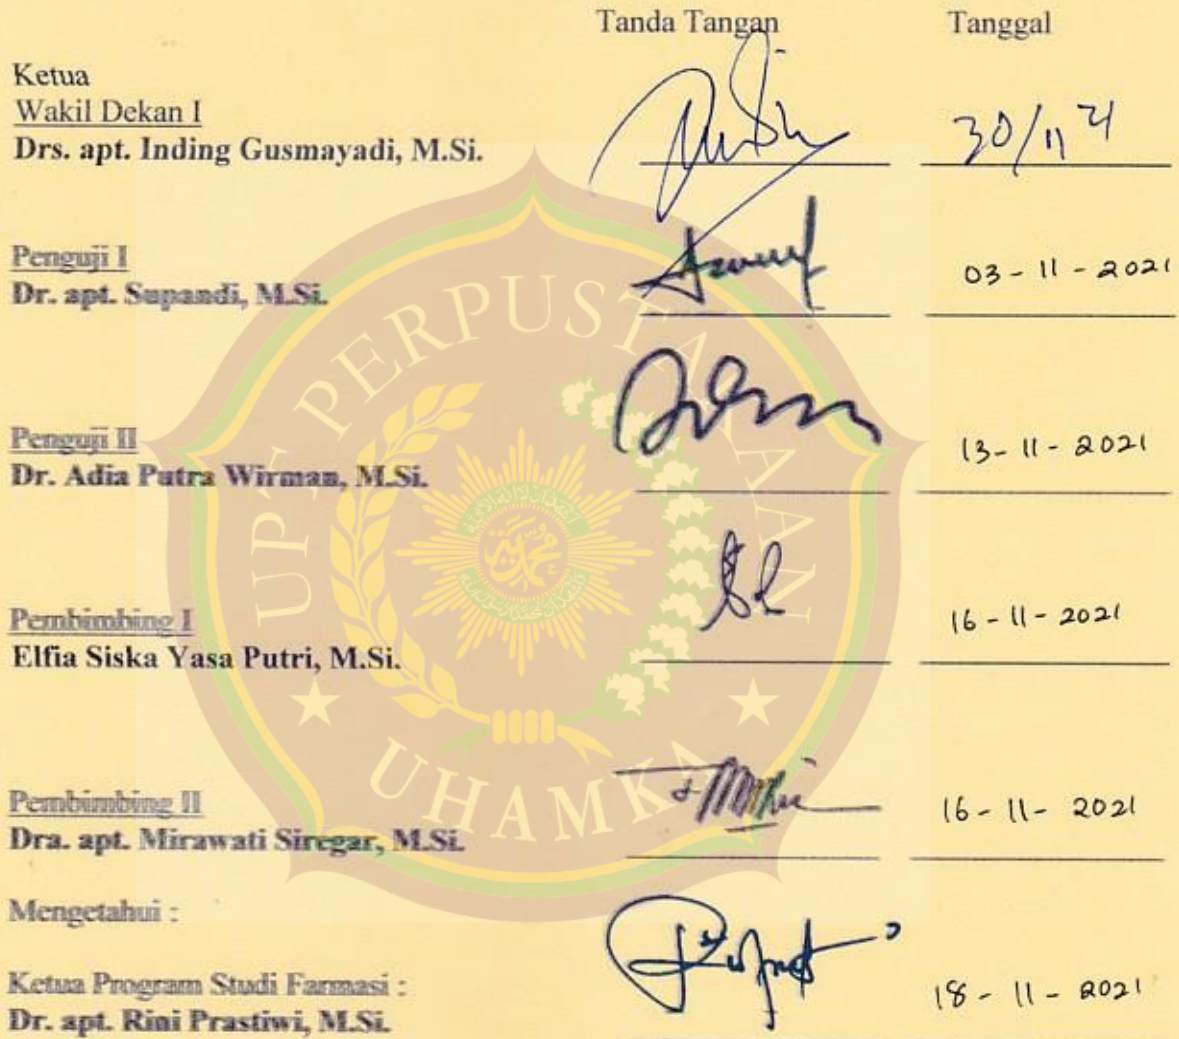 Tanda Tangan Tanggal
Ketua
Wakil Dekan I
Drs. apt. Inding Gusmayadi, M.Si. 30/11 21
Penguji I
Dr. apt. Supandi, M.Si. 03 - 11 - 2021
Penguji II
Dr. Adia Putra Wirman, M.Si. 13 - 11 - 2021
Pembimbing I
Elfia Siska Yasa Putri, M.Si. 16 - 11 - 2021
Pembimbing II
Dra. apt. Mirawati Siregar, M.Si. 16 - 11 - 2021
Mengetahui :
Ketua Program Studi Farmasi :
Dr. apt. Rini Prastiwi, M.Si. 18 - 11 - 2021
UPT PERPUSTAKAAN
UHAMKA